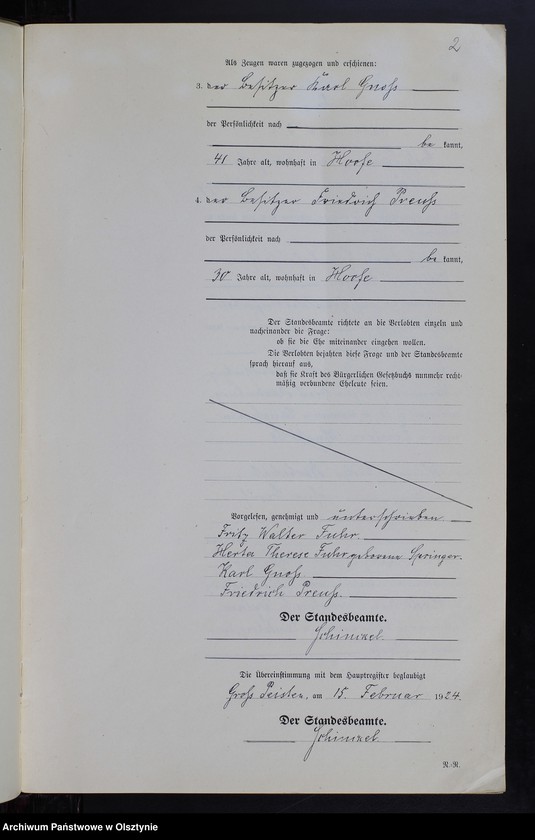 2
Als Zeugen waren zugezogen und erschienen:
3. der Besitzer Karl Gnoss
der Persönlichkeit nach
be kannt,
41 Jahre alt, wohnhaft in Hoofe
4. der Besitzer Friedrich Preuss
der Persönlichkeit nach
be kannt,
30 Jahre alt, wohnhaft in Hoofe
Der Standesbeamte richtete an die Verlobten einzeln und
nacheinander die Frage:
ob sie die Ehe miteinander eingehen wollen.
Die Verlobten bejahten diese Frage und der Standesbeamte
sprach hierauf aus,
daß sie Kraft des Bürgerlichen Gesetzbuchs nunmehr recht-
mäßig verbundene Eheleute seien.
Vorgelesen, genehmigt und unterschrieben
Fritz Walter Fuhr.
Herta Therese Fuhr geborene Springer.
Karl Gnoss
Friedrich Preuss.
Der Standesbeamte.
Schinkel
Die Übereinstimmung mit dem Hauptregister beglaubigt
Gross Peisten, am 15. Februar 1924.
Der Standesbeamte.
Schinkel
R.-R.
Archiwum Państwowe w Olsztynie